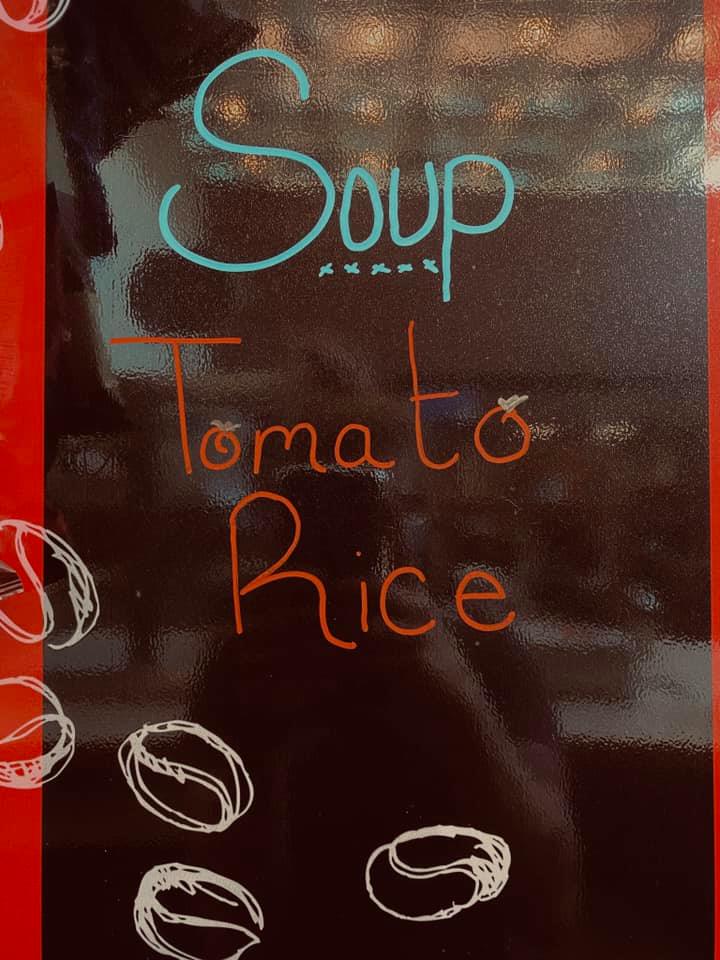 Soup
Tomato
Rice